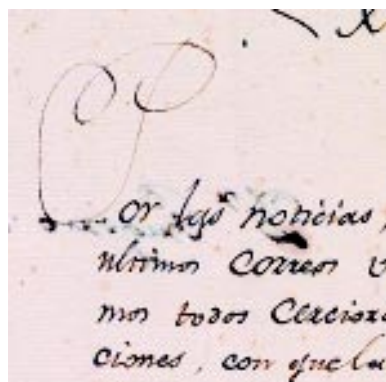 Por las noticias,
ultimos Correos
mos todos Cerciora
ciones, con que la